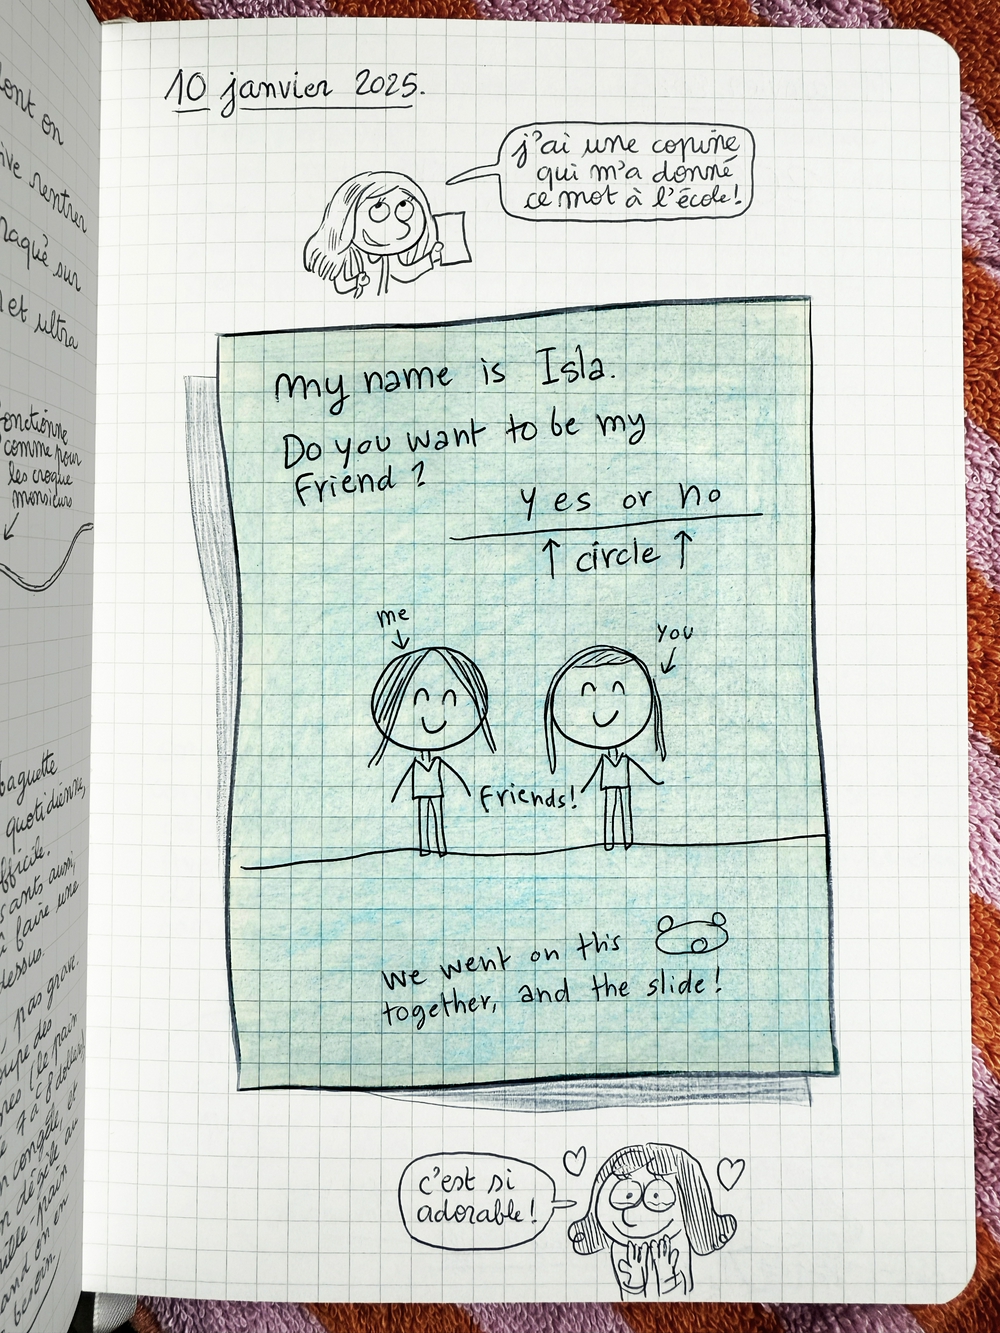 ont on
rentrer
sur
et ultra
fonctionne
comme pour
les croque
monsieurs
baguette
quotidienne,
aussi,
à faire une
pas grave.
des
(le pain
7 à 8 dollars)
congélé, et
au
pain
on en
besoin.
10 janvier 2025.
j'ai une copine
qui m'a donné
ce mot à l'école!
My name is Isla.
Do you want to be my
Friend?
Yes or no
↑ circle ↑
me
you
Friends!
We went on this
together, and the slide!
c'est si
adorable!